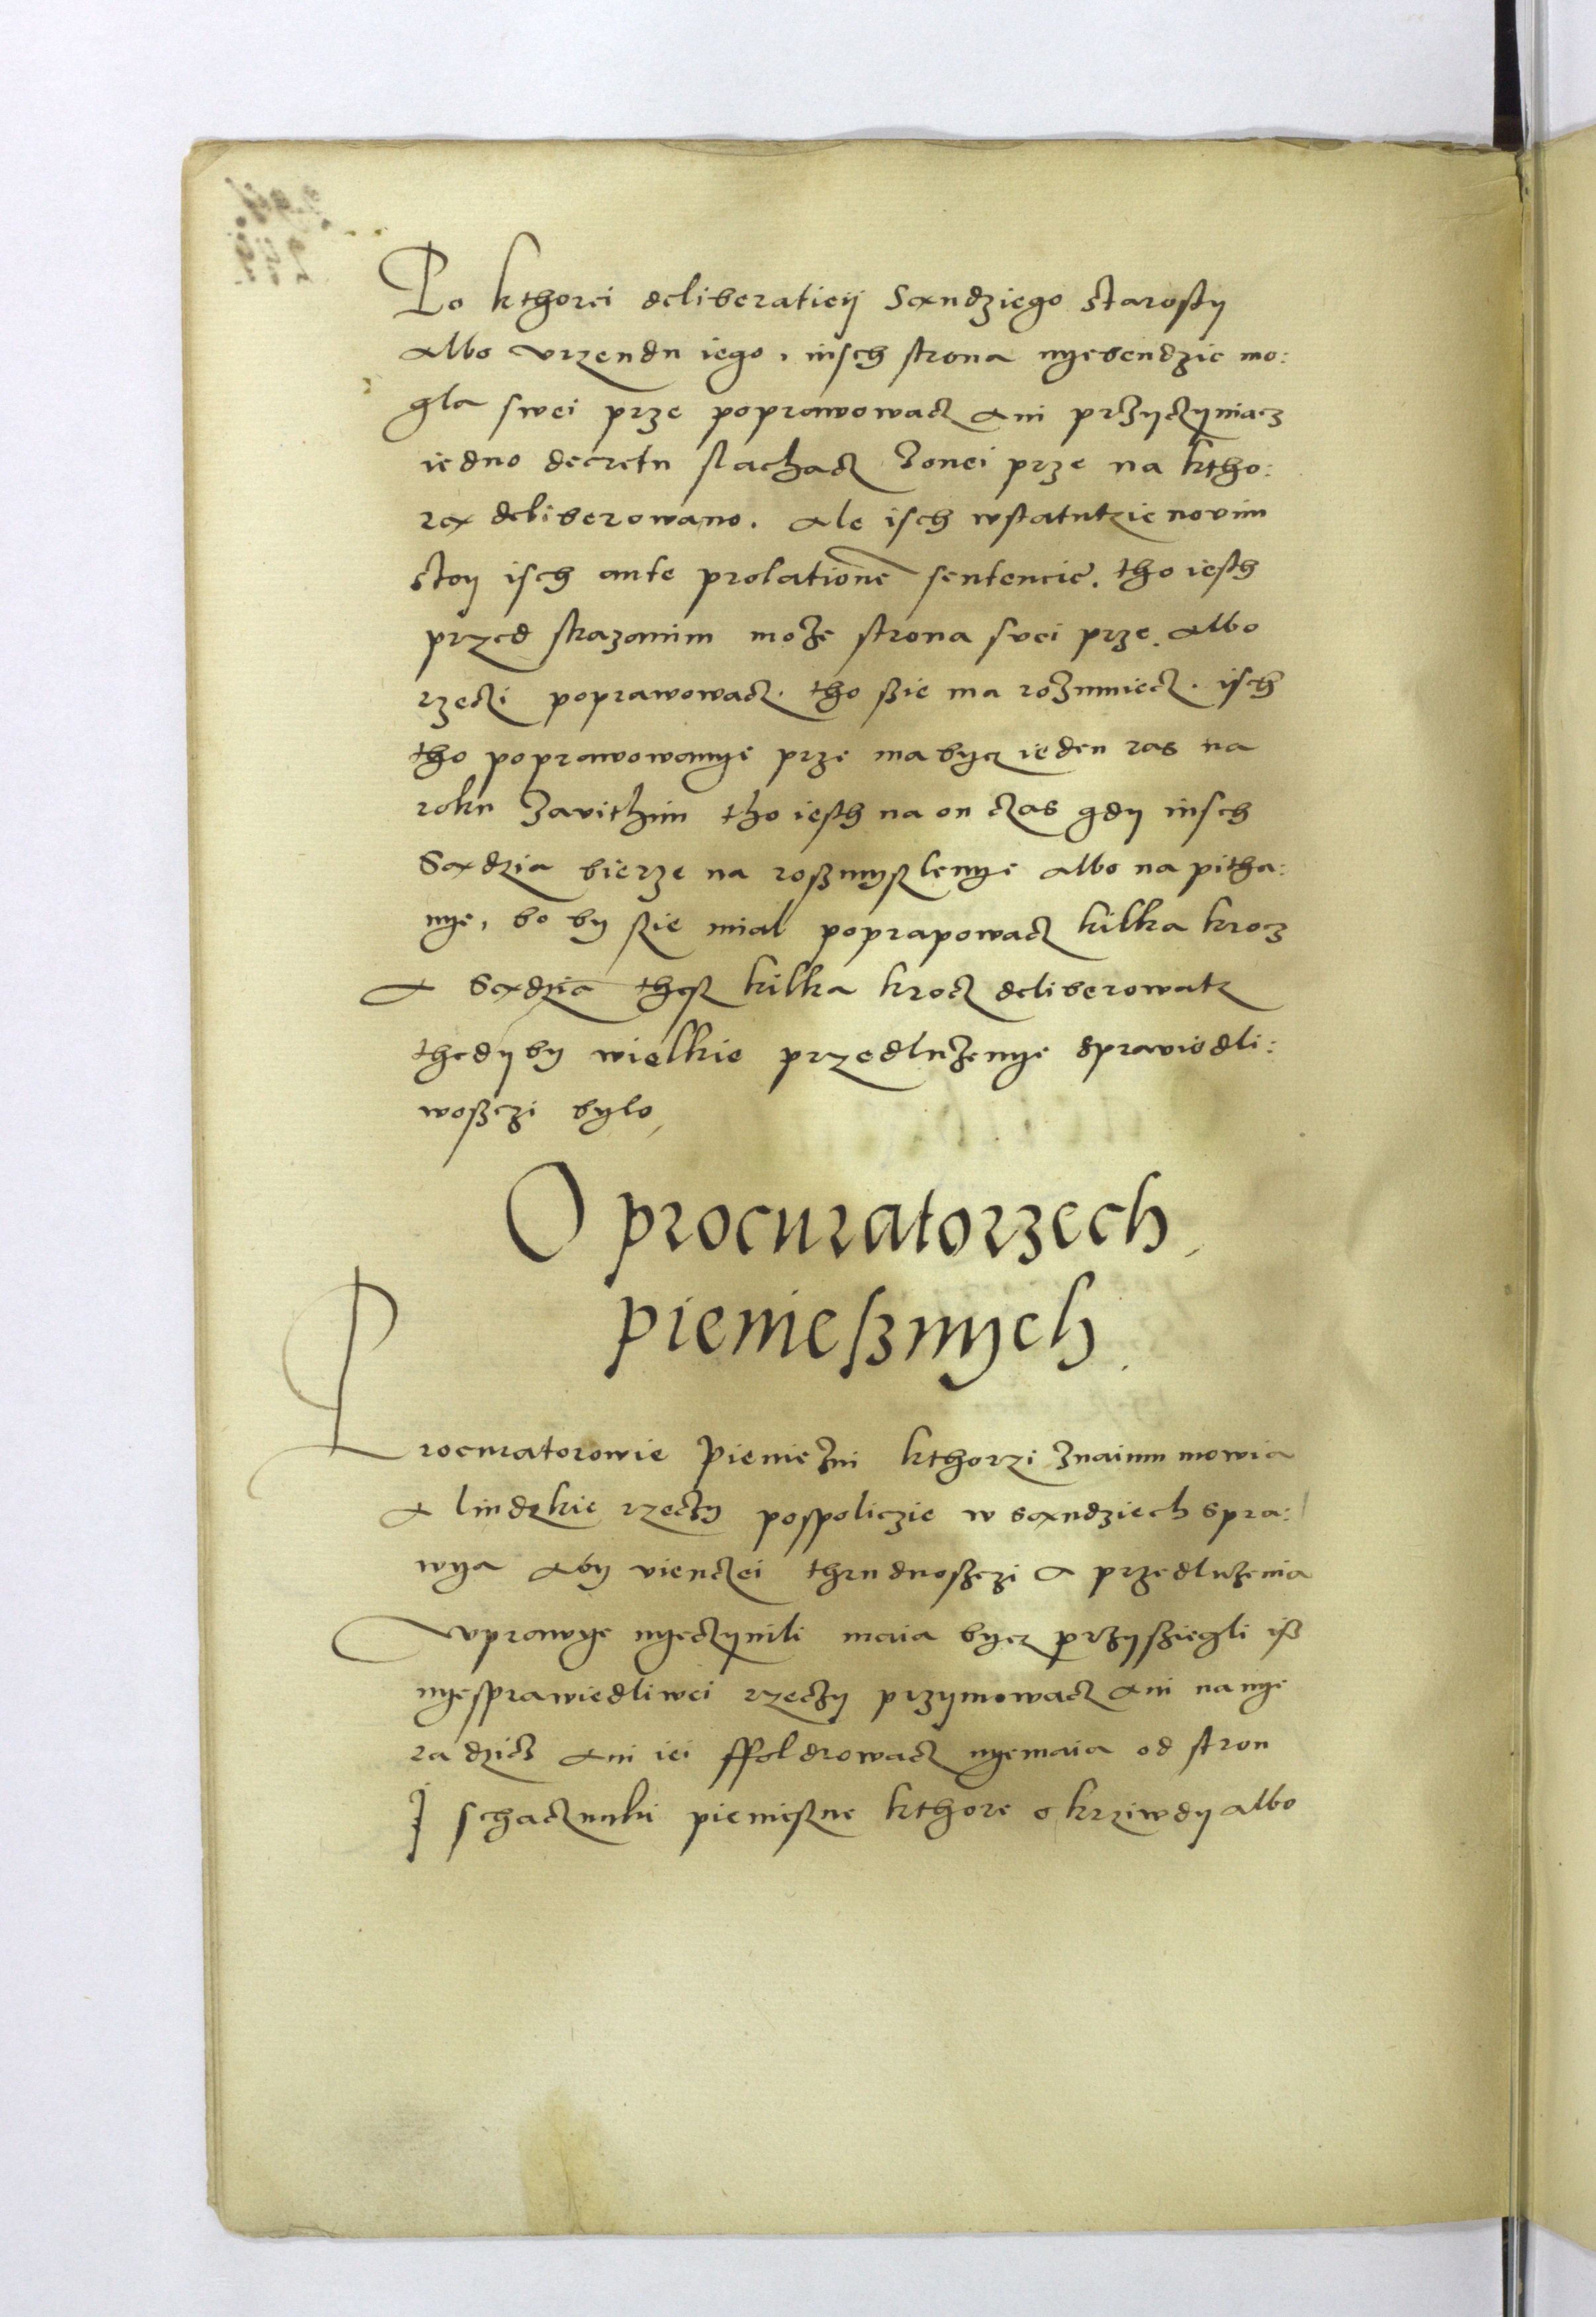 Po kthorei deliberatieÿ Sandziego starostÿ
albo vrzendu iego, insch strona nyebendzie mo:
gla swei prze poprawowacz ani przÿczÿniacz
iedno decretu slachacz zonei prze na ktho:
ra deliberowano. ale isch wstatutzie novim
stoÿ isch ante prolationē sentencie. tho iesth
przed skazanim może strona svei prze. albo
rzeczi poprawowacz. tho ßie ma rozumiecz. isch
tho poprawowanye prze ma bÿcz ieden ras na
roku zavithim tho iesth na on czas gdÿ insch
Sadzia bierze na roßmyßlenye albo na pitha:
nye, bo bÿ ßie mial poprapowacz kilka krocz
a Sadzia theß kilka krocz deliberowatz
thedÿ bÿ wielkie przedluzenye spraviedli:
woßczi bÿlo,
O procuratorzech,
pienießnych.
Procuratorowie pieniezni kthorzi znaimu mowia
a liudzkie rzeczÿ pospoliczie w sandziech spra:
wya abÿ vienczei thrudnoßczi a przedluzenia
vprawye nyeczÿnili maia bÿcz przÿßiegli iß
nyesprawiedliwei rzeczÿ przÿmowacz ani na nye
radzicz ani iei ffoldrowacz nyemaia od stron
I schaczunki pienießne kthore o krziwdÿ albo